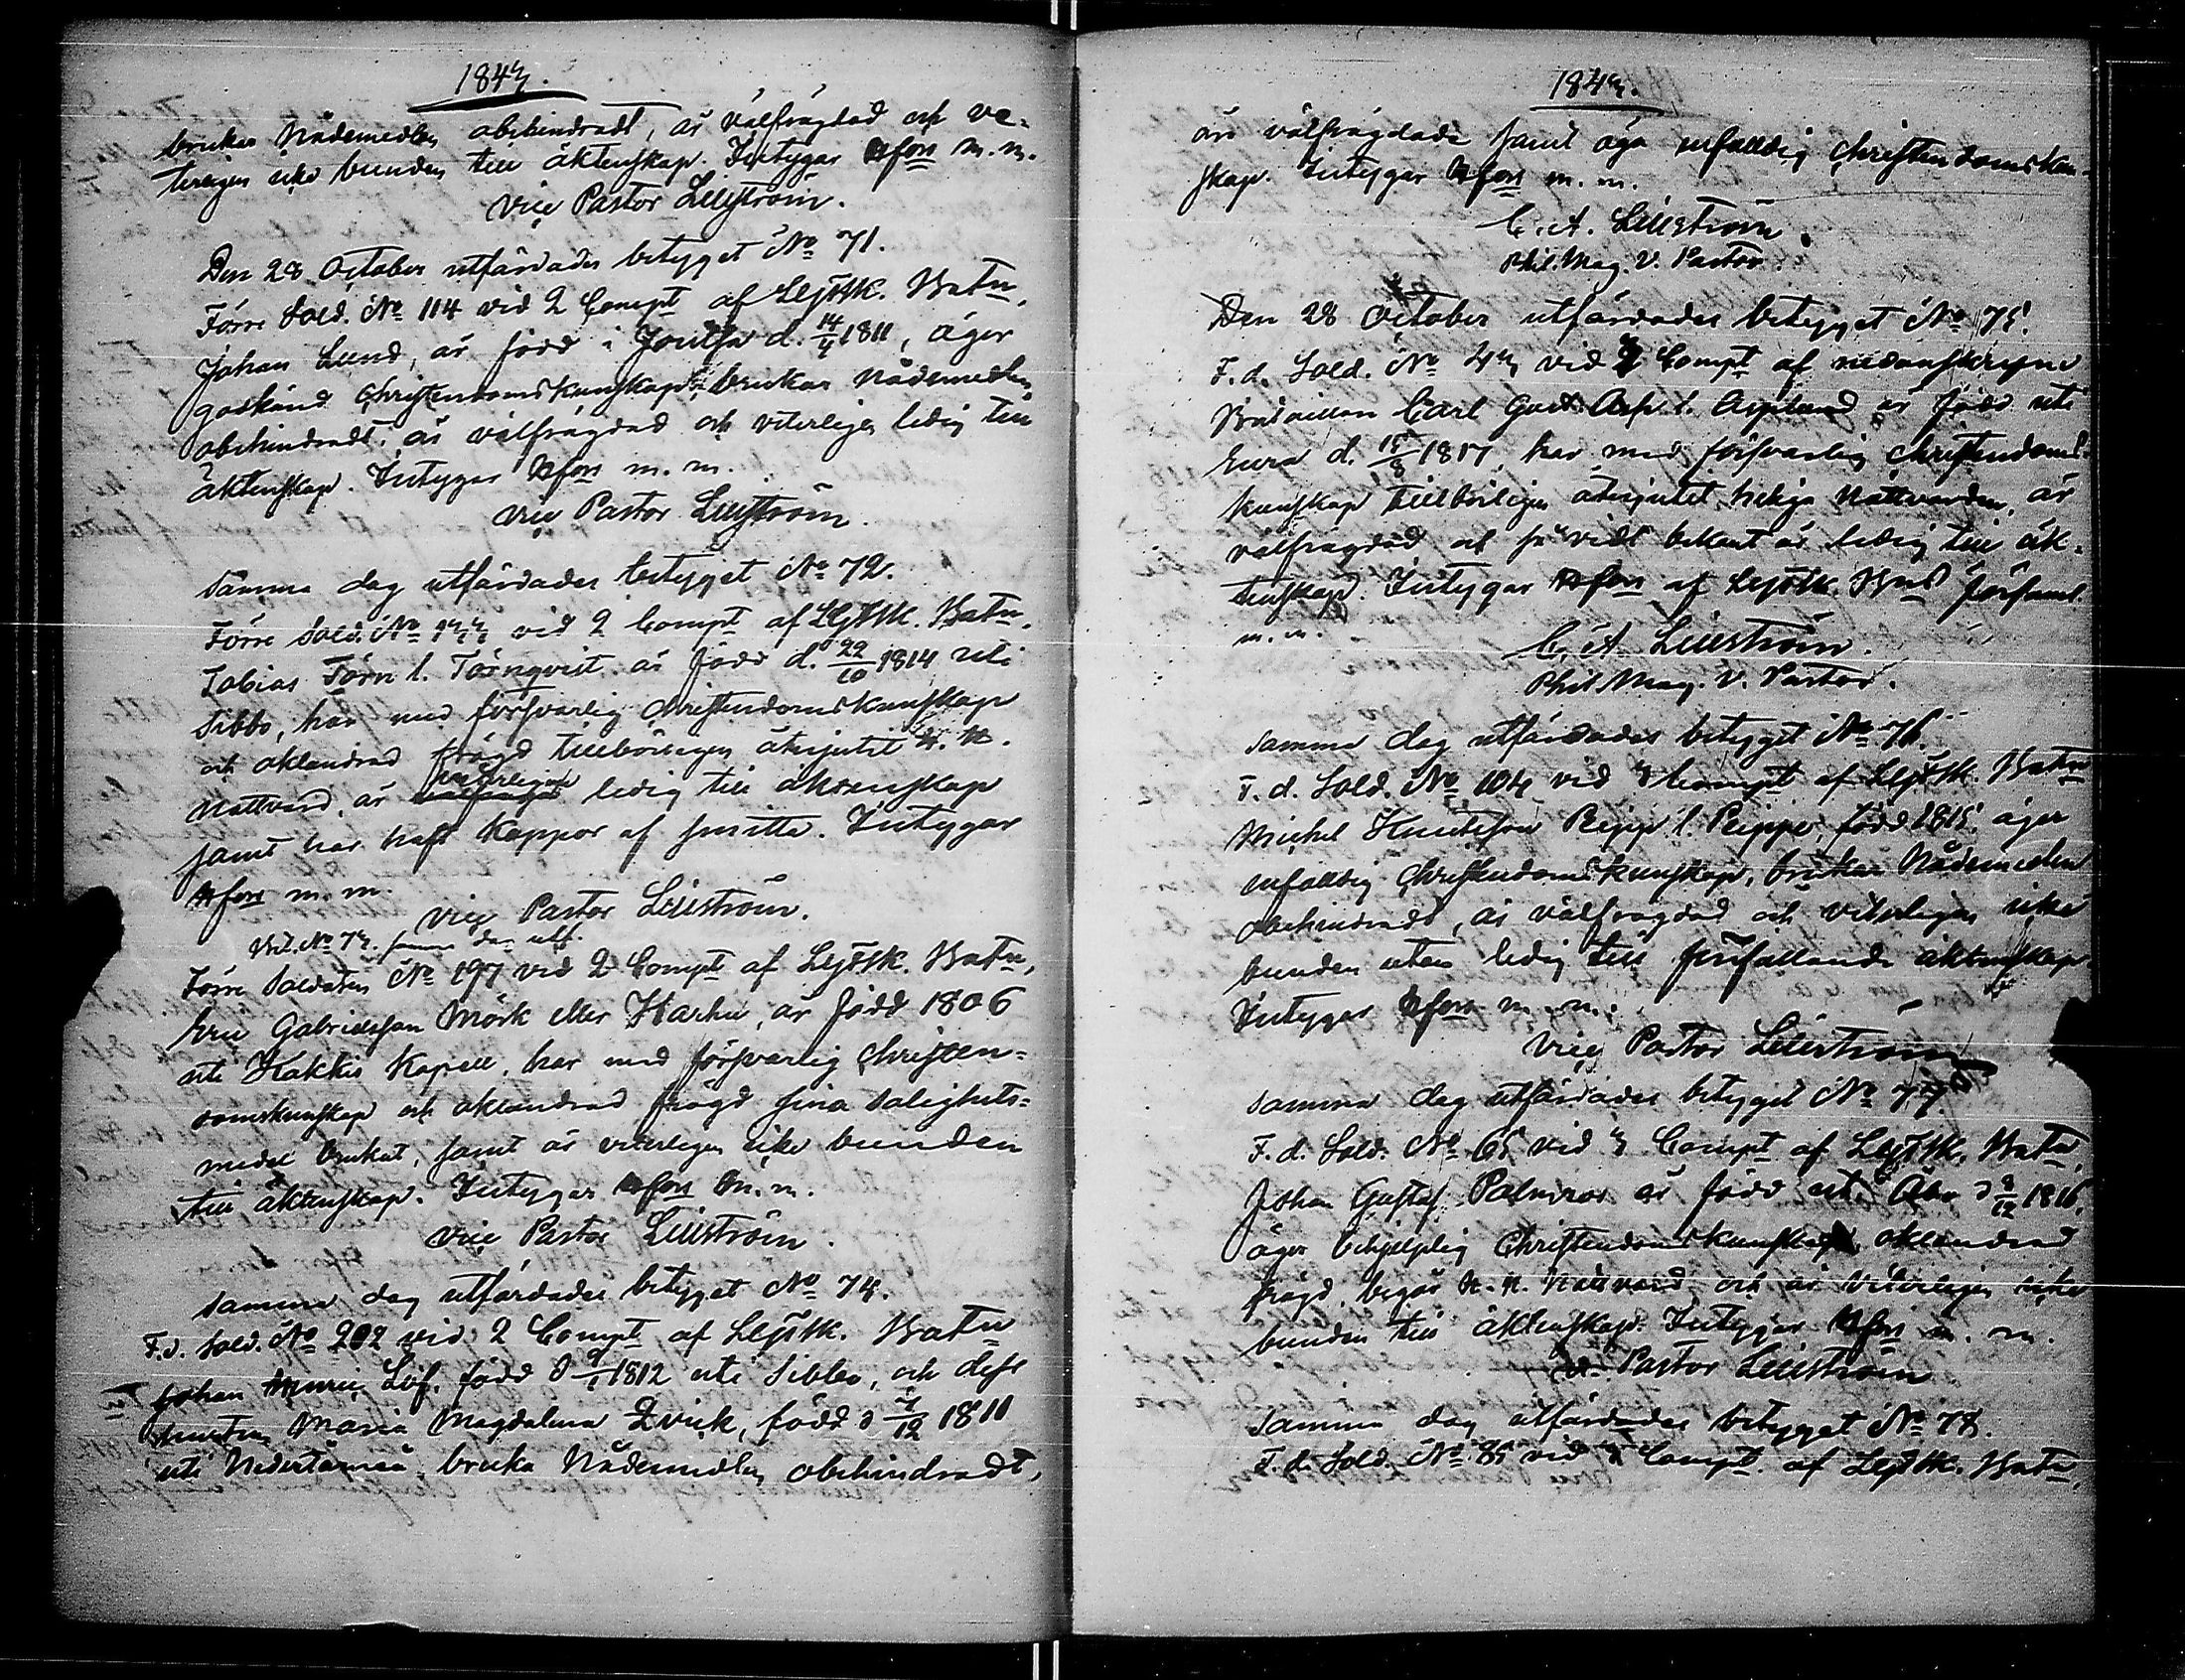 1843.
brukar Nådemedlen obehindradt, är välfrägdad och ve-
terligen icke bunden till äktenskap. Intygar Hfors m.m.
Vice Pastor Lillström.
Den 28 October utfärdades betyget No 71.
Förre Sold. No 114 vid 2 Compt af LgSSk. Batn,
Johan Lund, är född i Joutsa d. 14/4 1811, äger
godkänd Christendomskunskap, brukar Nådemedlen
obehindradt, är välfrägdad och veterligen ledig till
äktenskap. Intygar Hfors m.m.
Vice Pastor Lillström.
Samma dag utfärdades betyget No 72.
Förre Sold. No 133 vid 2 Compt af LgSSk. Batn,
Tobias Törn l. Törnqvist, är född d. 22/10 1814 uti
Sibbo, har med försvarlig Christendomskunskap
och oklandrad frägd tillbörligen åtnjutit H. H.
Nattvard, är veterligen ledig till äktenskap
samt har haft koppor af smitta. Intygar
Hfors m.m.
Vice Pastor Lillström.
Bet. No 73. samma dag utf.
Förre Soldaten No 197 vid 2 Compt af LgSSk. Batn,
Eric Gabrielsson Mörk eller Harhu, är född 1806
uti Kakkis Kapell, har med försvarlig Christen-
domskunskap och oklandrad frägd sina Salighets-
medel brukat, samt är veterligen icke bunden
till äktenskap. Intygar Hfors m.m.
Vice Pastor Lillström.
Samma dag utfärdades betyget No 74.
F.d. Sold. No 202 vid 2 Compt af LgSSk. Batn
Johan Löf, född d 9/1 1812 uti Sibbo, och dess
hustru Maria Magdalena Qvick, född d 4/12 1811
uti Nedertorneå, bruka Nådemedlen obehindradt,
1843.
äro välfrägdade samt äga enfalldig Christendomskun-
skap. Intygar Hfors m.m.
C. A. Lillström.
Phil. Mag. V. Pastor.
Den 28 October utfärdades betyget No 75.
F.d. Sold. No 43 vid 3 Compt af nedanskrefne
Bataillon Carl Gust. Asp l. Asplund är född uti
Eura d. 15/8 1817, har med försvarlig Christendoms-
kunskap tillbörligen åtnjutit heliga Nattvarden, är
välfrägdad och så vidt bekant är ledig till äk-
tenskap. Intygar Hfors af LgSSk. Bns Församl.
m.m.
C. A. Lillström.
Phil Mag. V. Pastor.
Samma dag utfärdades betyget No 76.
F.d. Sold. No 104 vid 3 Compt af LgSSk. Batn
Michel Knutsson Repp l. Reppo, född 1815, äger
enfalldig Christendomskunskap, brukar Nådemedlen
obehindradt, är välfrägdad och veterligen icke
bunden utan ledig till påfallande äktenskap.
Intygar Hfors m.m.
Vice Pastor Lillström
Samma dag utfärdades betyget No 77.
F.d. Sold. No 65 vid 3 Compt af LgSSk. Batn,
Johan Gustaf Palmroos är född uti Åbo d 3/12 1816,
äger behjelplig Christendomskunskap, oklandrad
frägd, begår H. H. Nattvard och är veterligen icke
bunden till äktenskap. Intygar Hfors m.m.
V. Pastor Lillström
Samma dag utfärdades betyget No 78.
F.d. Sold. No 85 vid 3 Compt. af LgSSk. Batn,